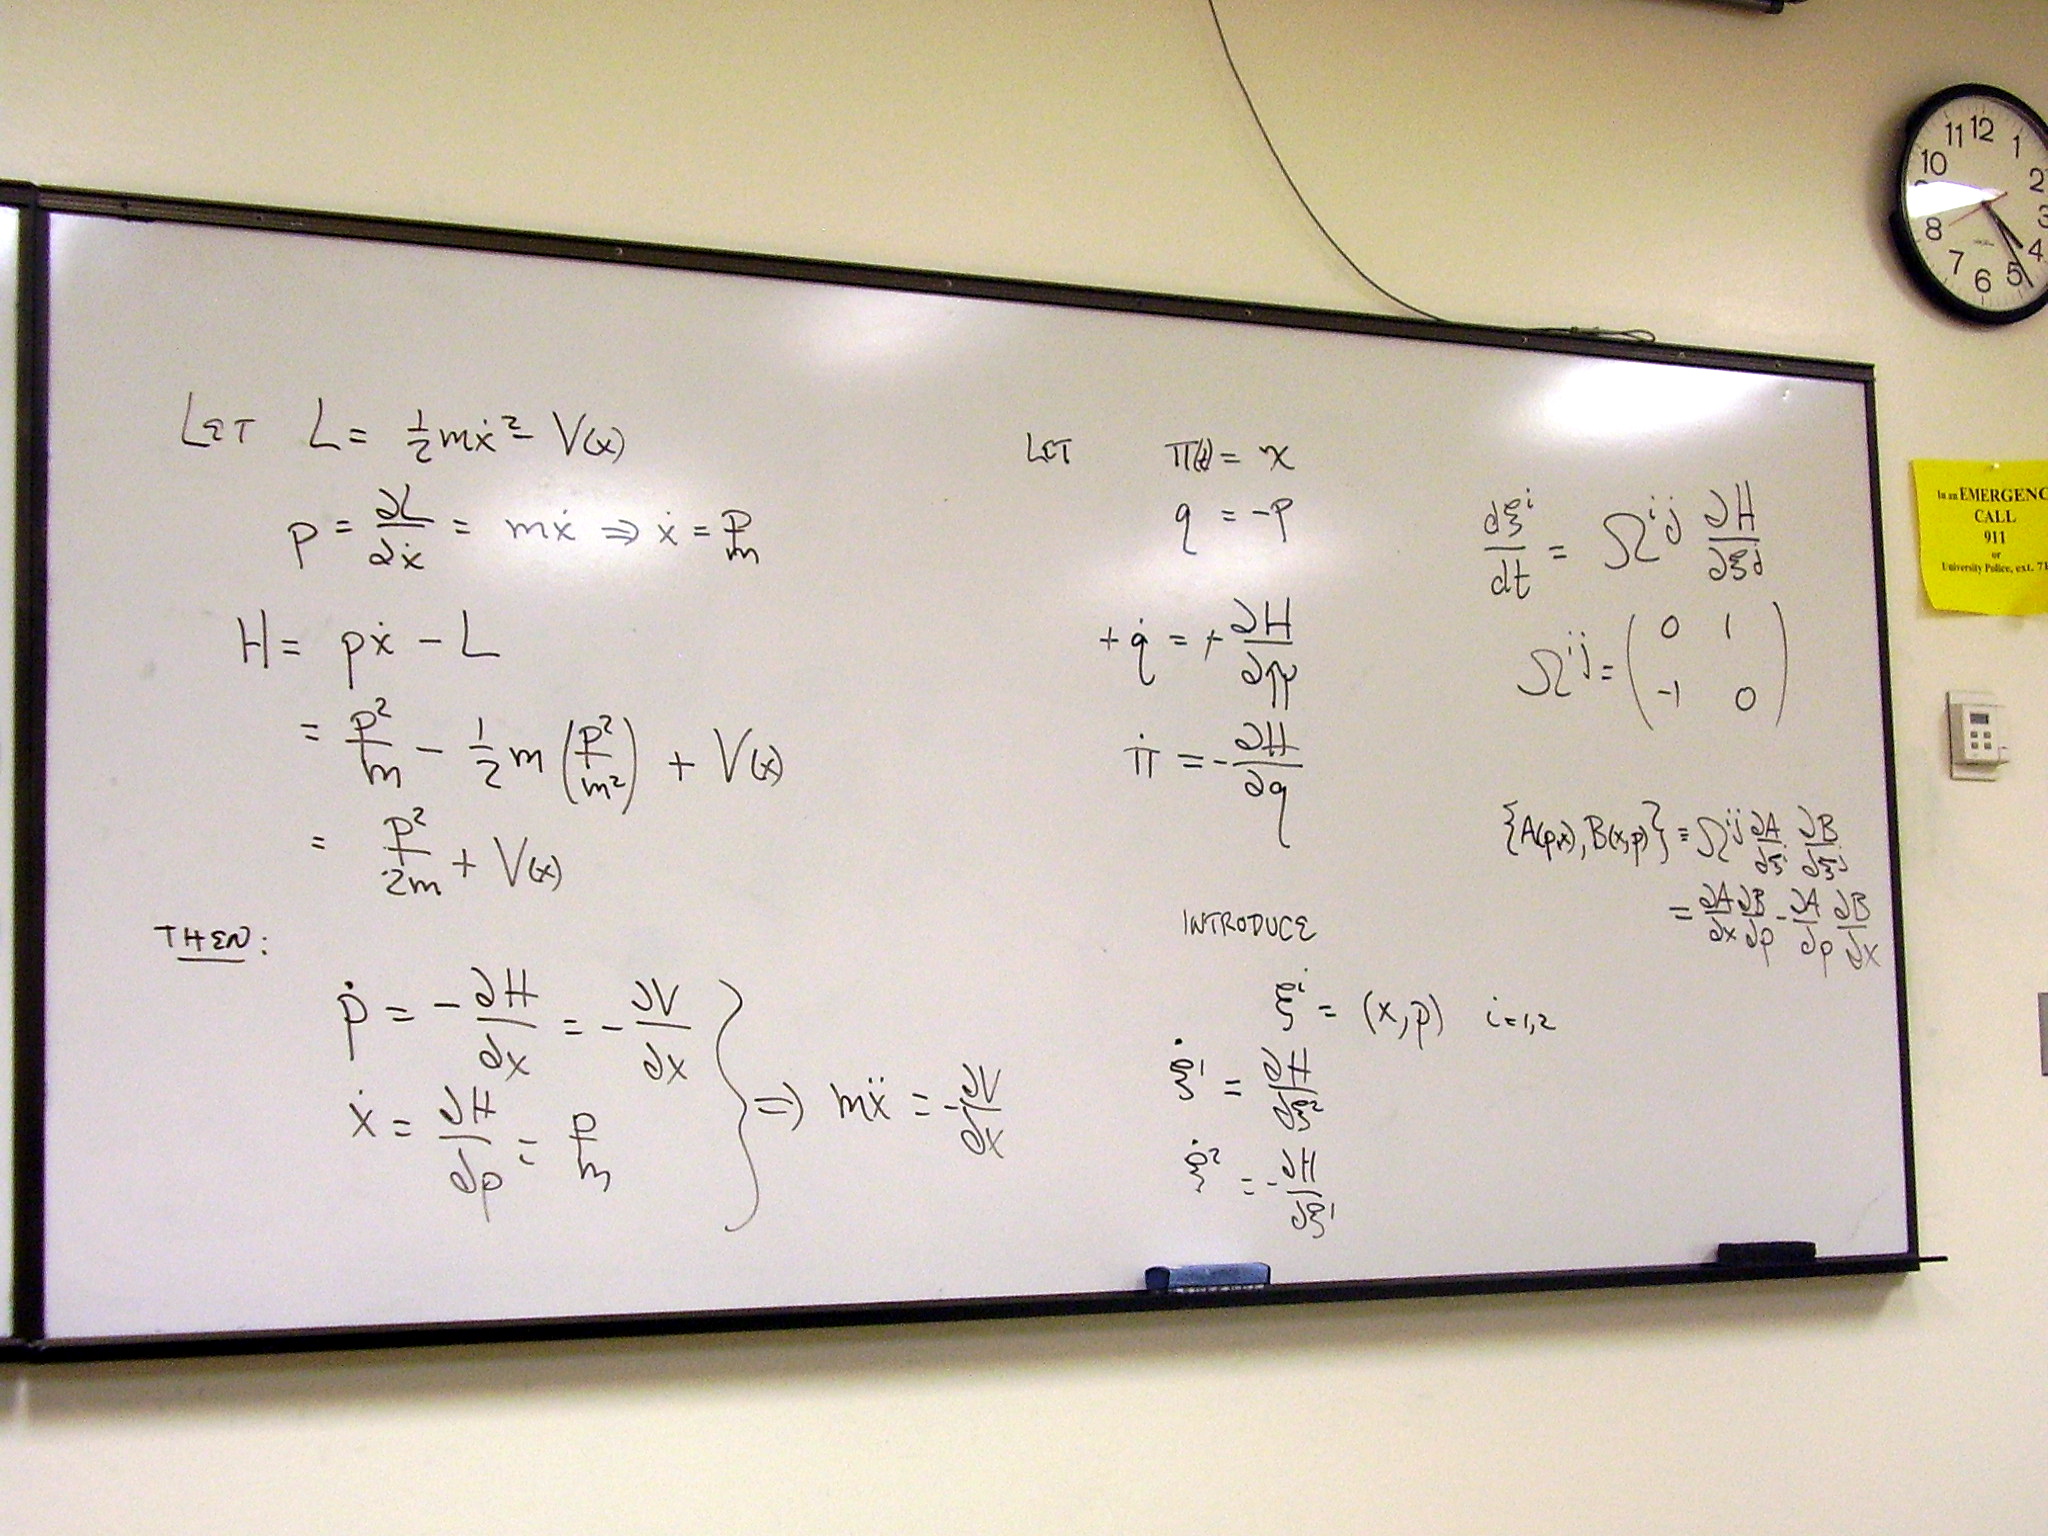 LET L = 1/2 mẋ² - V(x)
p = ∂L/∂ẋ = mẋ ⇒ ẋ = p/m
H = pẋ - L
= p²/m - 1/2 m (p²/m²) + V(x)
= p²/2m + V(x)
THEN:
ṗ = -∂H/∂x = -∂V/∂x
ẋ = ∂H/∂p = p/m
} ⇒ mẍ = -∂V/∂x
LET π(t) = x
q = -p
+ q̇ = + ∂H/∂π
π̇ = -∂H/∂q
INTRODUCE
ξⁱ = (x,p) i=1,2
ξ̇¹ = ∂H/∂ξ²
ξ̇² = -∂H/∂ξ¹
dξⁱ/dt = Ωⁱʲ ∂H/∂ξʲ
Ωⁱʲ = ( 0 1
-1 0 )
{A(p,x), B(x,p)} ≡ Ωⁱʲ ∂A/∂ξⁱ ∂B/∂ξʲ
= ∂A/∂x ∂B/∂p - ∂A/∂p ∂B/∂x
11 12 1
10 2
3
8 4
7 6 5
In an EMERGENC
CALL
911
or
University Police, ext. 71